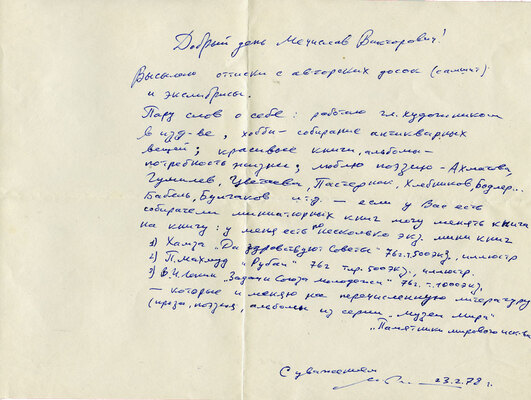 Добрый день Мечислав Викторович!
Высылаю оттиски с авторских досок (самшит)
и экслибрисы.
Пару слов о себе: работаю гл. художником
в изд-ве, хобби - собирание антикварных
вещей; красивые книги, альбомы -
потребность жизни; люблю поэзию - Ахматова,
Гумилев, Цветаева, Пастернак, Хлебников, Бодлер..,
Бабель, Булгаков и т.д. — если у Вас есть
собиратели миниатюрных книг могу менять книга
на книгу: у меня есть по несколько экз. мини книг
1) Хамза "Да здравствуют Советы" 76 г. т. 500 экз., иллюстр
2) П. Махмуд "Рубаи" 76 г тир. 500 экз., иллюстр.
3) В.И. Ленин "Задачи Союза молодежи" 76 г. т. 1000 экз.
— которые и меняю на перечисленную литературу
(проза, поэзия, альбомы из серии "Музеи мира"
"Памятники мирового иск-ва
С уважением
23.2.78 г.